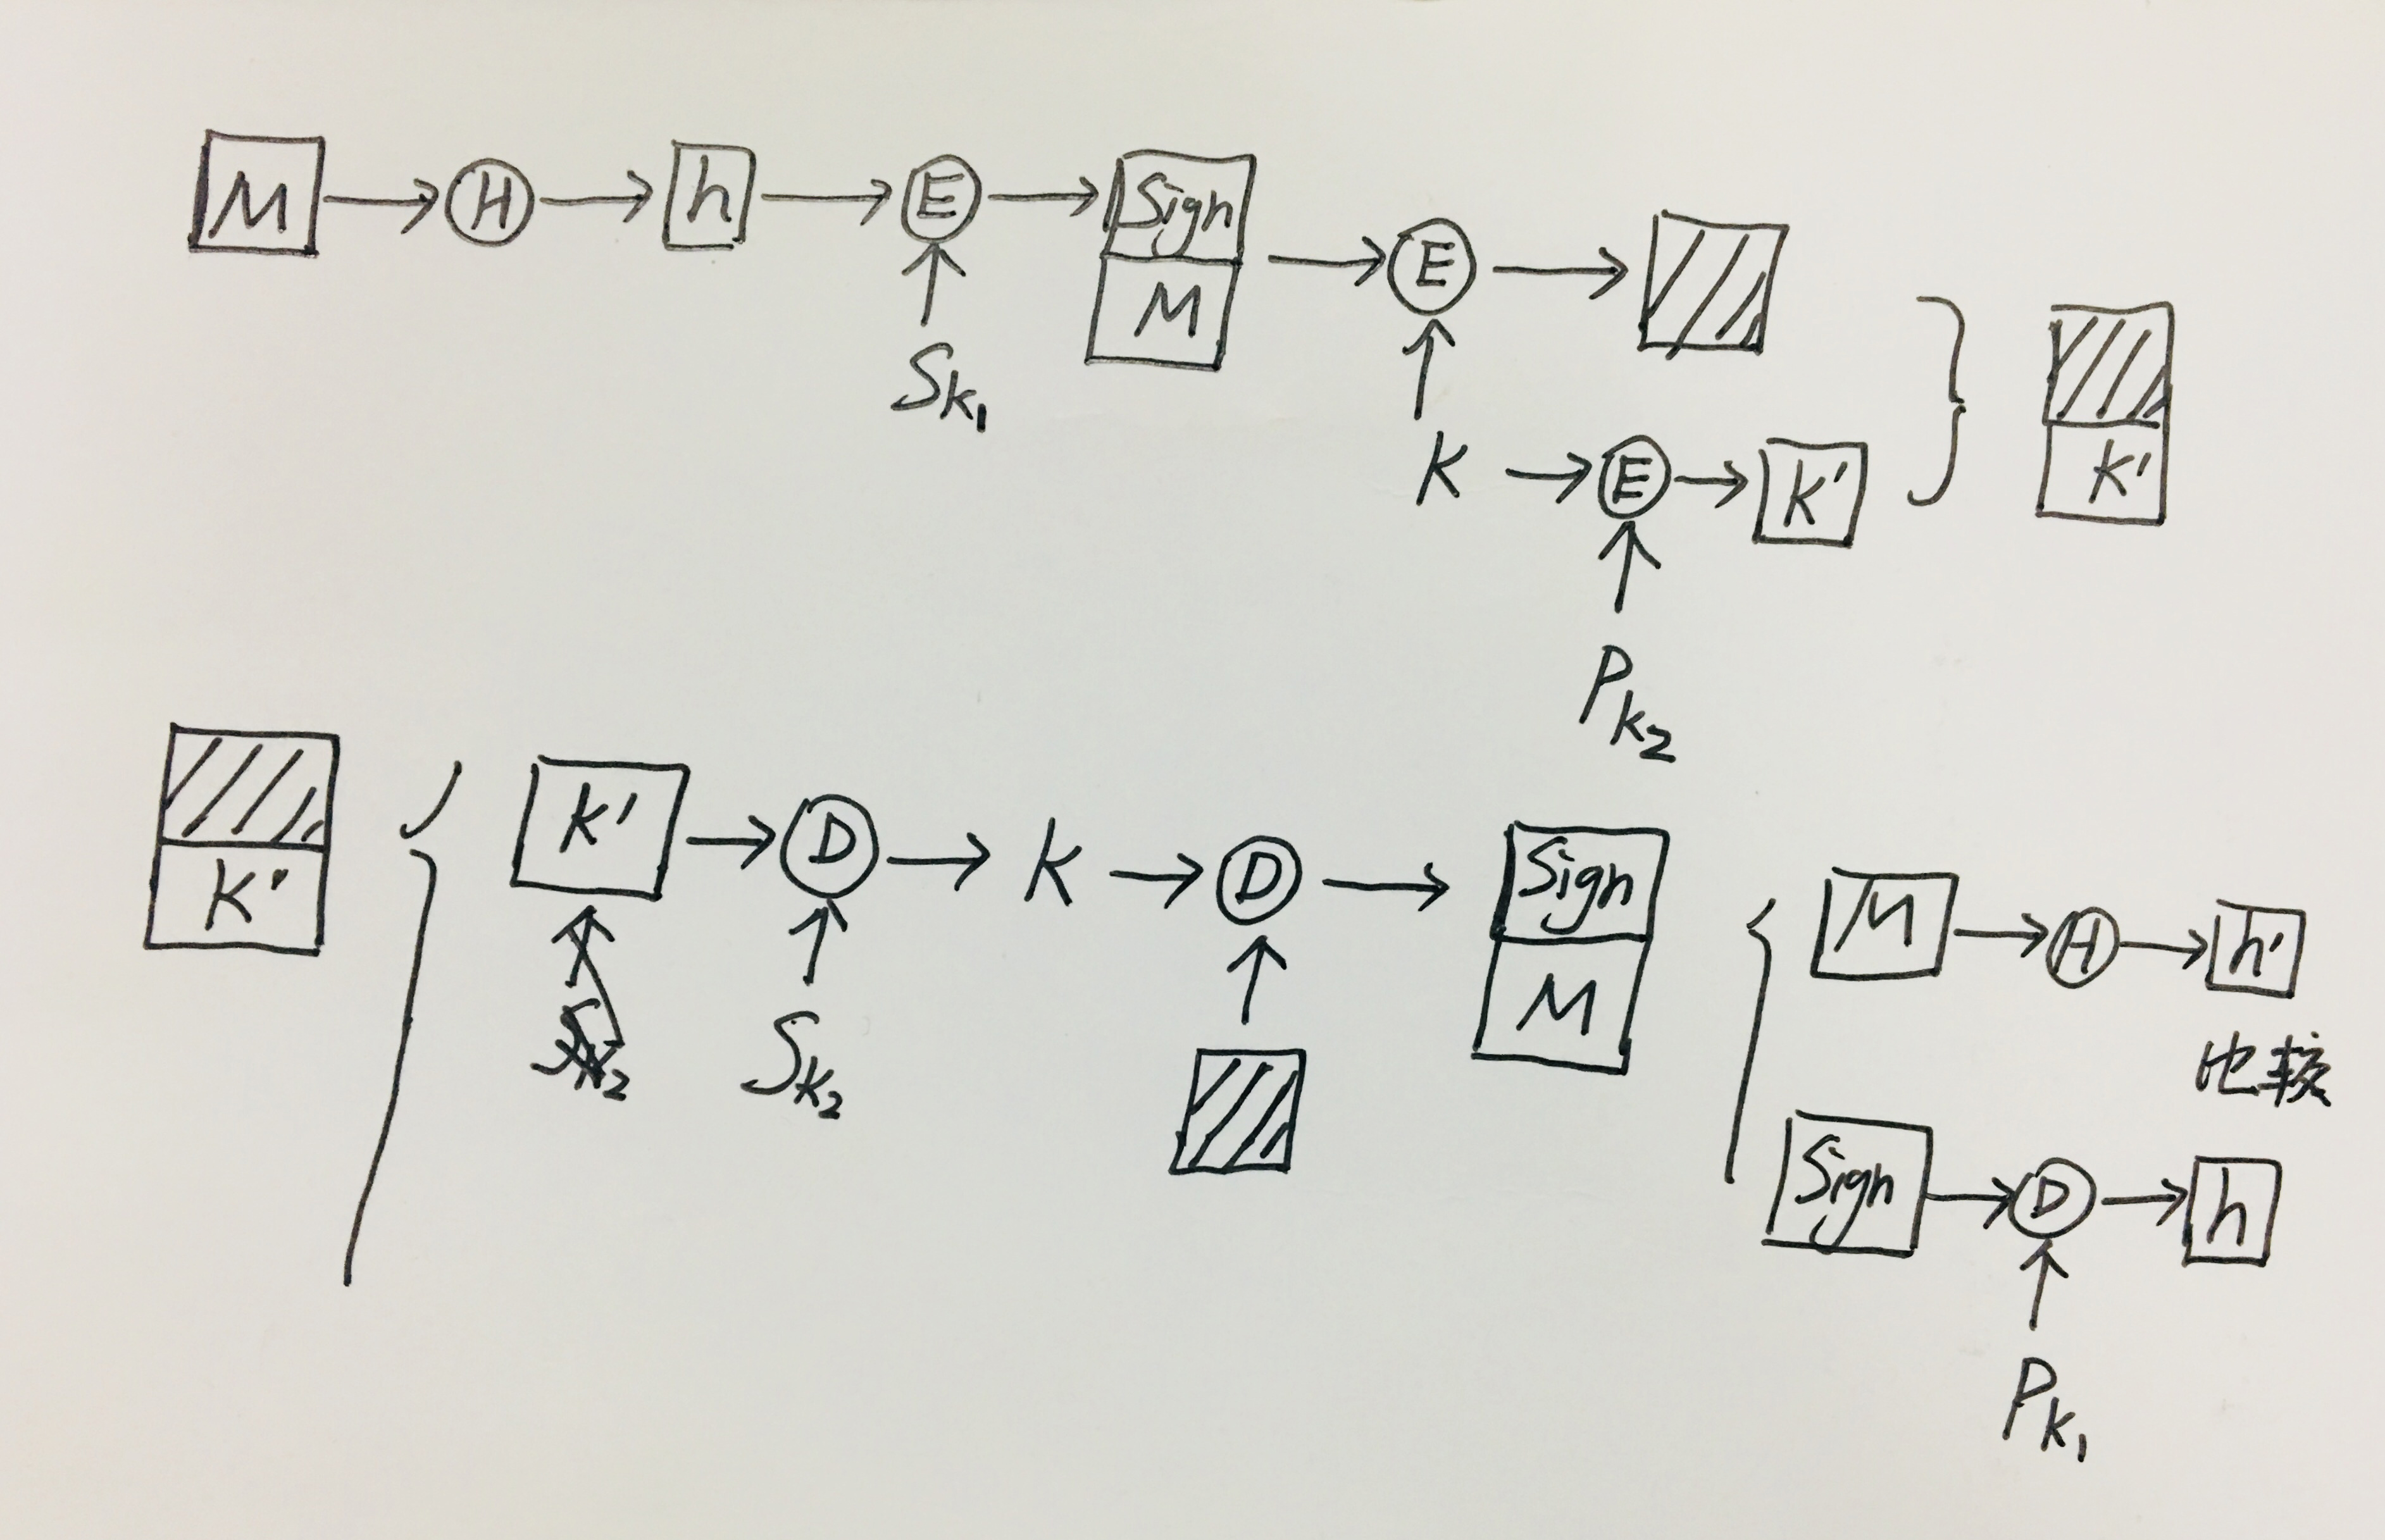 M H h E Sign
M E
Sk1
K E K' K'
Pk2
K' K' D K D Sign
M M H h'
Sk2 Sk2
比较
Sign D h
Pk1